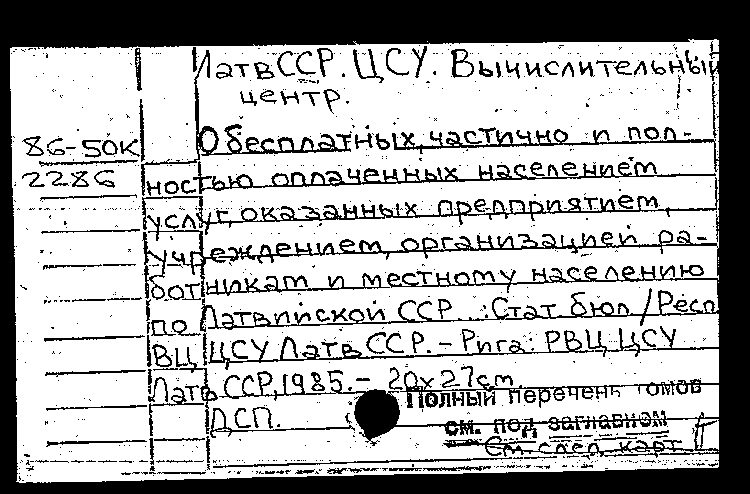 ЛатвССР. ЦСУ. Вычислительный
центр.
86-50к О бесплатных, частично и пол-
2286 ностью оплаченных населением
услуг, оказанных предприятием,
учреждением, организацией ра-
ботникам и местному населению
по Латвийской ССР...: Стат бюл / Респ
ВЦ ЦСУ Латв ССР. – Рига: РВЦ ЦСУ
Латв ССР, 1985. – 20х27см.
Полный перечень томов
ДСП.
см. под заглавном
См. след. карт